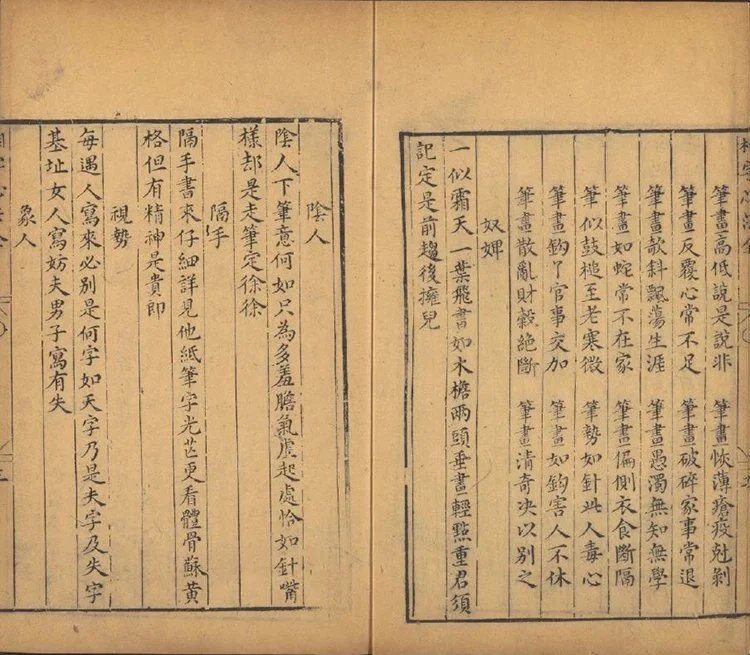 筆畫高低說是說非 筆畫恢薄瘡疫尅剝
筆畫反覆心常不足 筆畫破碎家事常退
筆畫欹斜飄蕩生涯 筆畫愚濁無知無學
筆畫如蛇常不在家 筆畫偏側衣食斷隔
筆似鼓槌至老寒微 筆勢如針此人毒心
筆畫鈎了官事交加 筆畫如鈎害人不休
筆畫散亂財穀絕斷 筆畫清奇决以别之
奴婢
一似霜天一葉飛書如木檐兩頭垂畫輕點重君須
記定是前趨後擁兒
陰人
陰人下筆意何如只為多羞膽氣虛起處恰如針嘴
樣却是走筆定徐徐
隔手
隔手書來仔細詳見他紙筆字光芒更看體骨蘇黄
格但有精神是貴即
視勢
每遇人寫來必别是何字如天字乃是夫字及失字
基址女人寫妨夫男子寫有失
象人